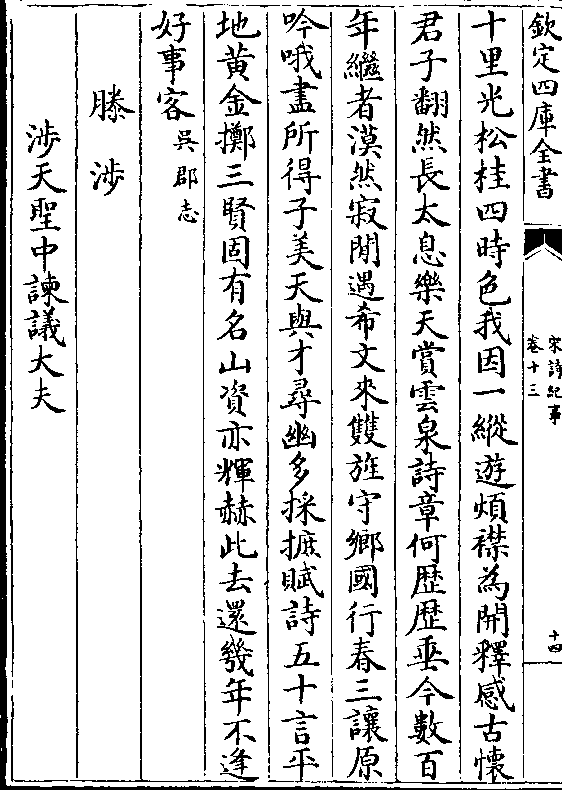 欽定四庫全書
宋詩紀事
卷十三
十四
十里光松桂四時色我因一縱遊煩襟為開釋感古懷
君子翻然長太息樂天賞雲泉詩章何歴歴垂今數百
年繼者漠然寂閒遇希文來雙旌守鄉國行春三讓原
吟哦盡所得子美天與才尋幽多採摭賦詩五十言平
地黄金擲三賢固有名山資亦輝赫此去還幾年不逢
好事客吳郡志
滕涉
涉天聖中諫議大夫